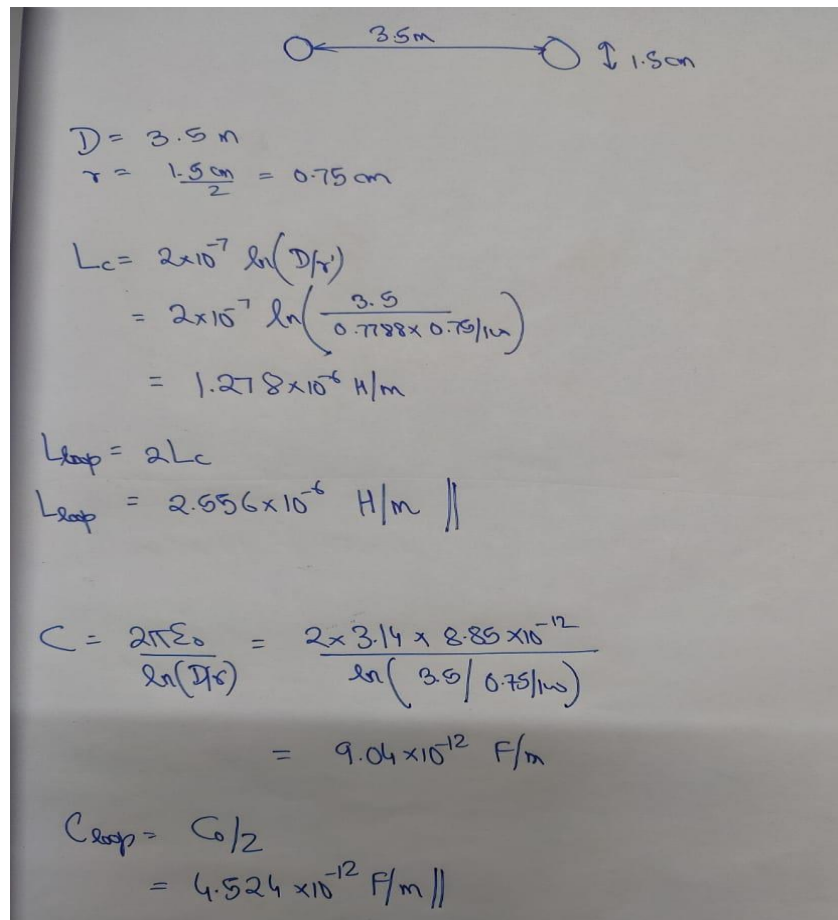 3.5m
1.5cm
D = 3.5 m
r = 1.5 cm/2 = 0.75 cm
Lc = 2×10⁻⁷ ln(D/r')
= 2×10⁻⁷ ln(3.5/0.7788×0.75/100)
= 1.278×10⁻⁶ H/m
Lloop = 2Lc
Lloop = 2.556×10⁻⁶ H/m ||
C = 2πε₀/ln(D/r) = 2×3.14×8.85×10⁻¹²/ln(3.5/0.75/100)
= 9.04×10⁻¹² F/m
Cloop = C₀/2
= 4.524×10⁻¹² F/m ||